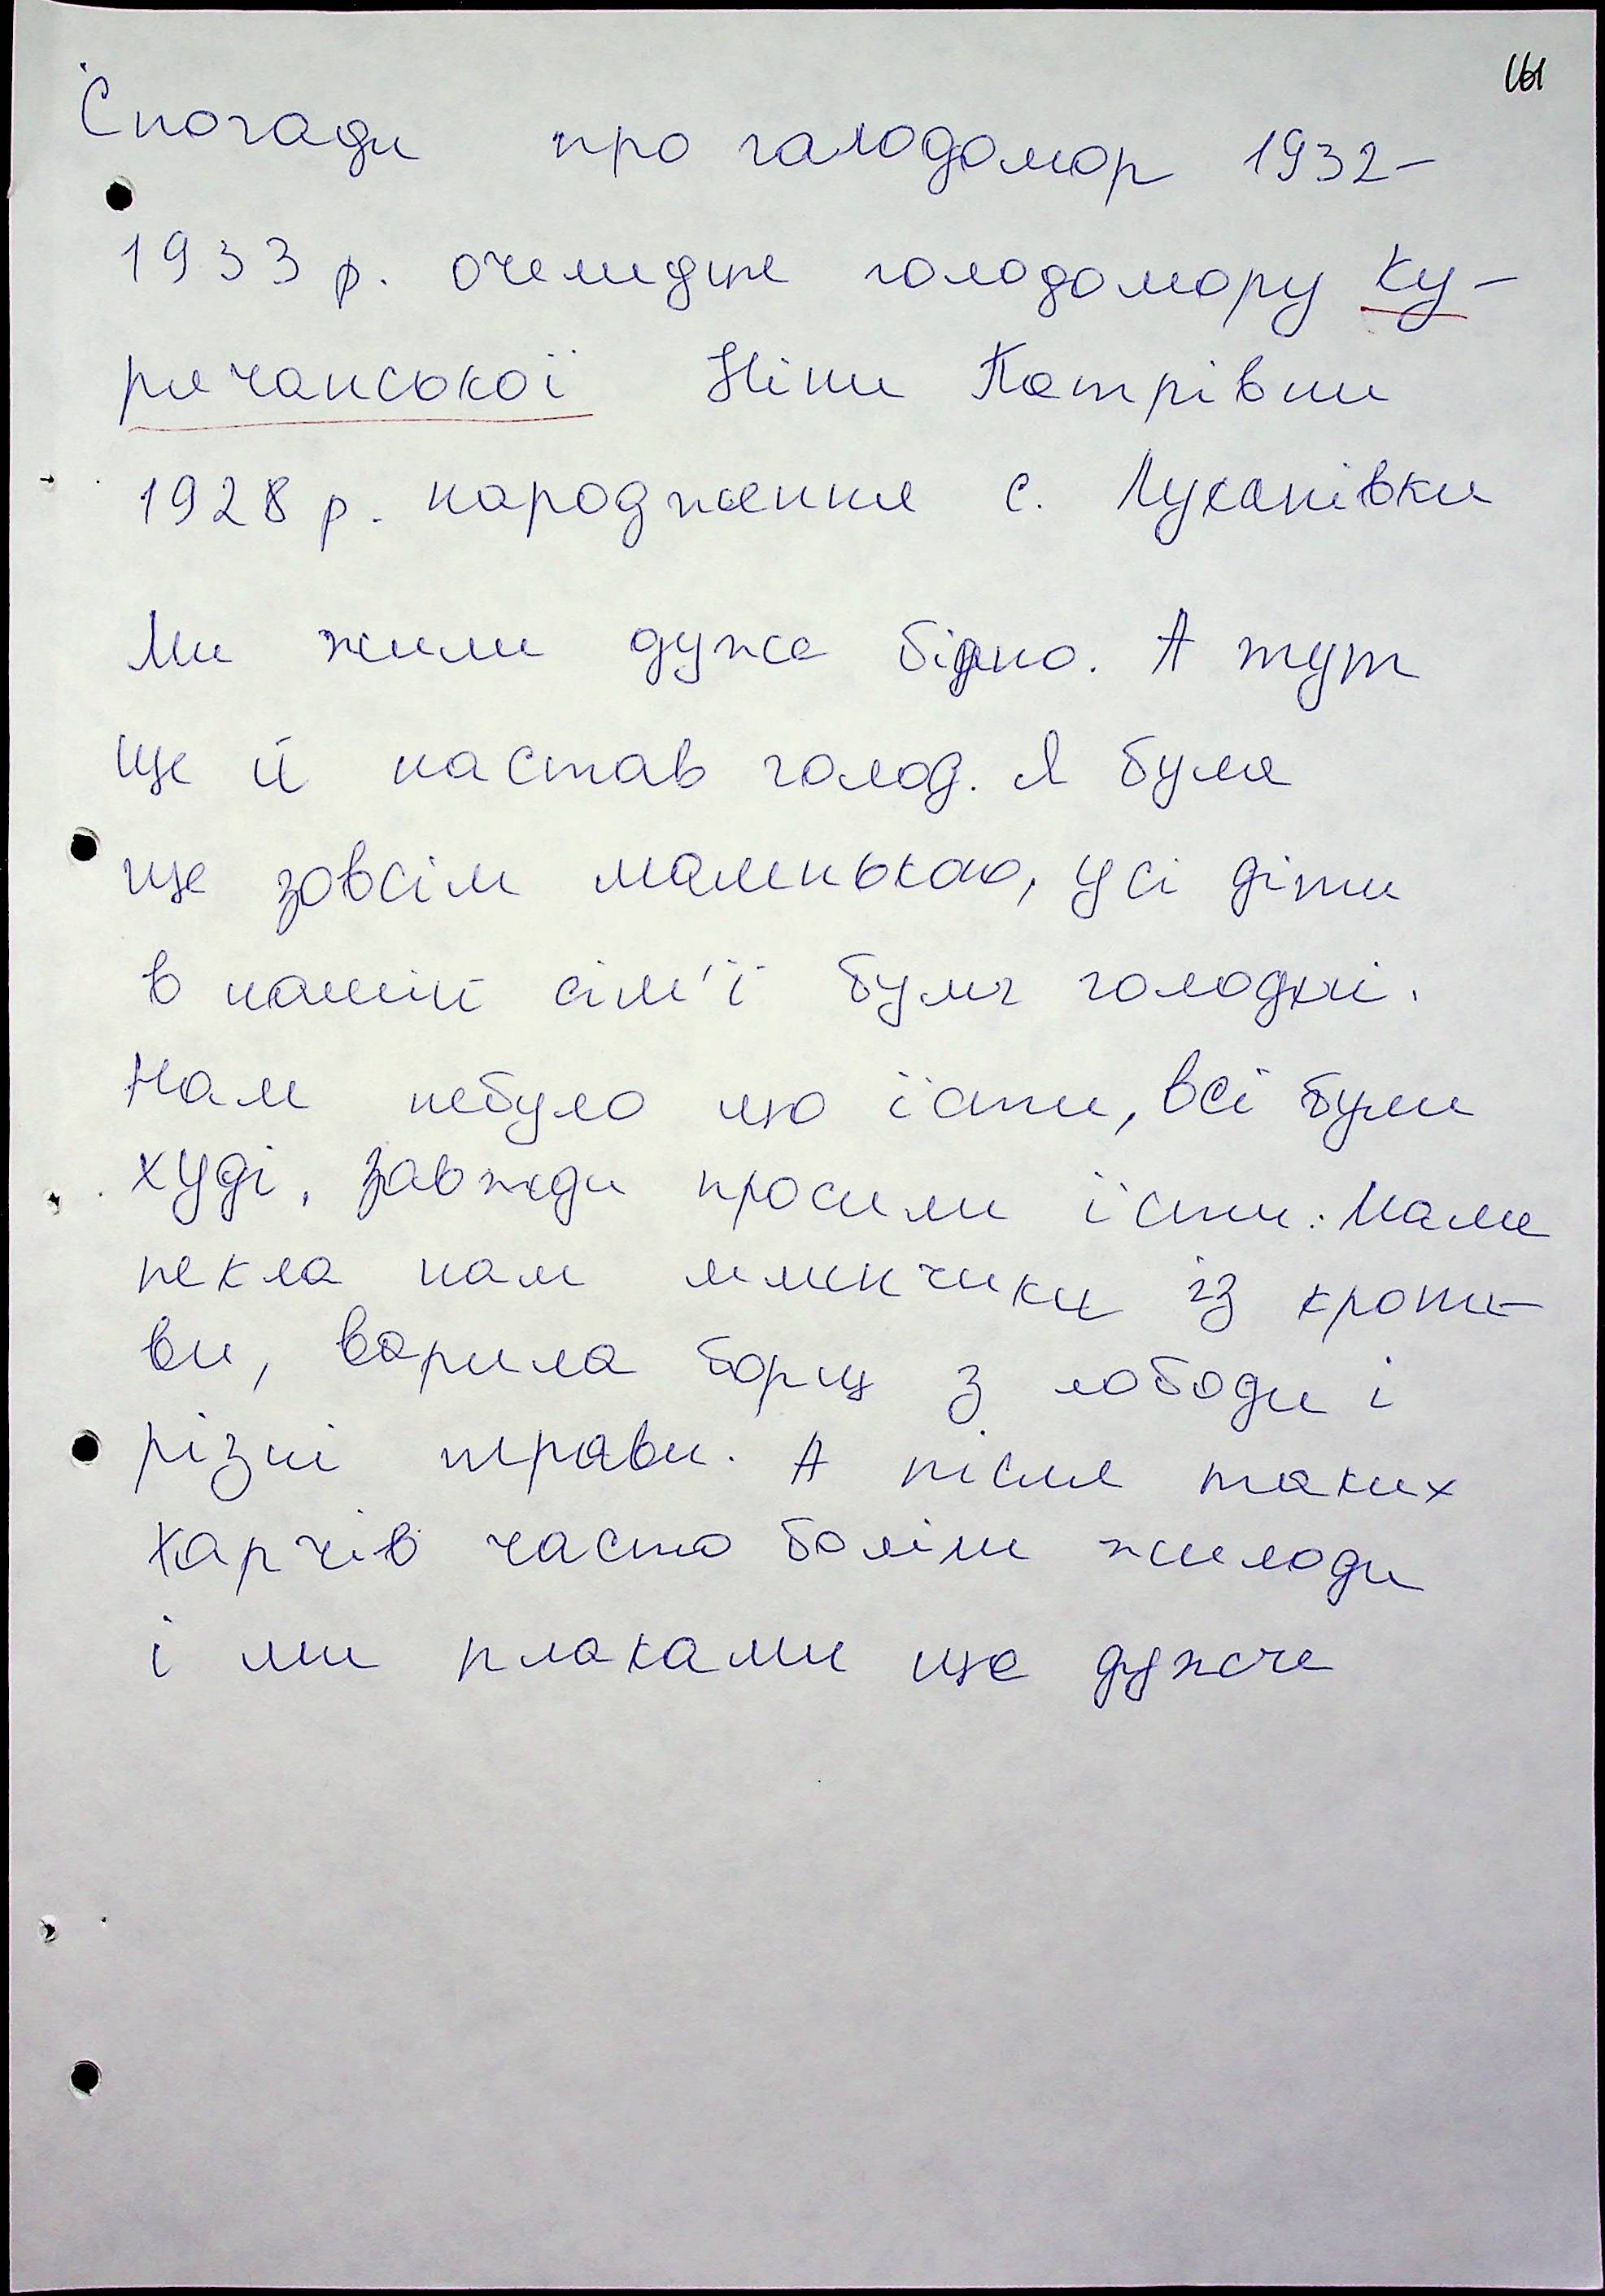 161
Спогади про галодомор 1932-
1933 р. очемидця голодомору Ку-
ричанської Ніни Петрівни
1928 р. народження с. Луканівки
Ми жили дуже бідно. А тут
ще й настав голод. Я була
ще зовсім маленькою, усі діти
в нашій сім'ї були голодні.
Нам небуло що їсти, всі були
худі, завжди просили їсти. Мама
пекла нам млинчики із кропи-
ви, варила борщ з лободи і
різні трави. А після таких
харчів часто боліли жилоди
і ми плакали ще дужче